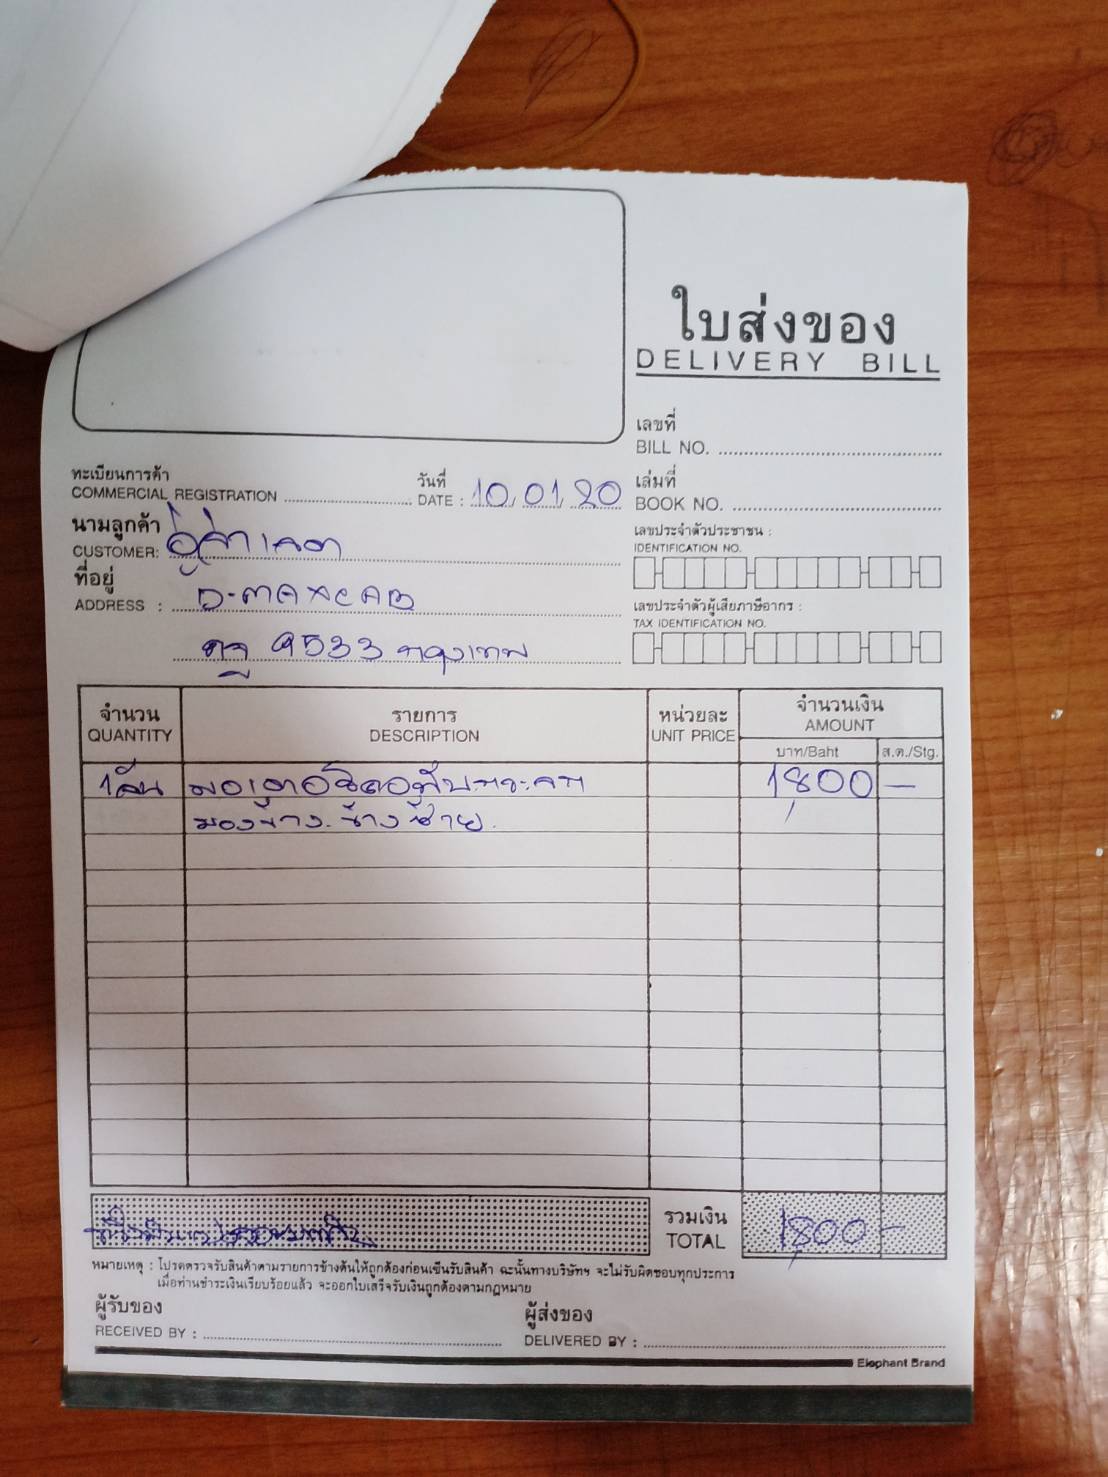 ใบส่งของ
DELIVERY BILL
เลขที่
BILL NO.
ทะเบียนการค้า
COMMERCIAL REGISTRATION
วันที่
DATE : 10,01,20
เล่มที่
BOOK NO.
นามลูกค้า
CUSTOMER:
เลขประจำตัวประชาชน :
IDENTIFICATION NO.
ที่อยู่
ADDRESS : D-MAX CAB
เลขประจำตัวผู้เสียภาษีอากร :
TAX IDENTIFICATION NO.
9533 กรุงเทพ
จำนวน รายการ หน่วยละ จำนวนเงิน
QUANTITY DESCRIPTION UNIT PRICE AMOUNT
บาท/Baht ส.ต./Stg.
1,800 -
มองข้าง. ข้างซ้าย.
รวมเงิน
TOTAL 1,800 -
หมายเหตุ : โปรดตรวจรับสินค้าตามรายการข้างต้นให้ถูกต้องก่อนเซ็นรับสินค้า ฉะนั้นทางบริษัทฯ จะไม่รับผิดชอบทุกประการ
เมื่อท่านชำระเงินเรียบร้อยแล้ว จะออกใบเสร็จรับเงินถูกต้องตามกฎหมาย
ผู้รับของ
RECEIVED BY :
ผู้ส่งของ
DELIVERED BY :
Elephant Brand